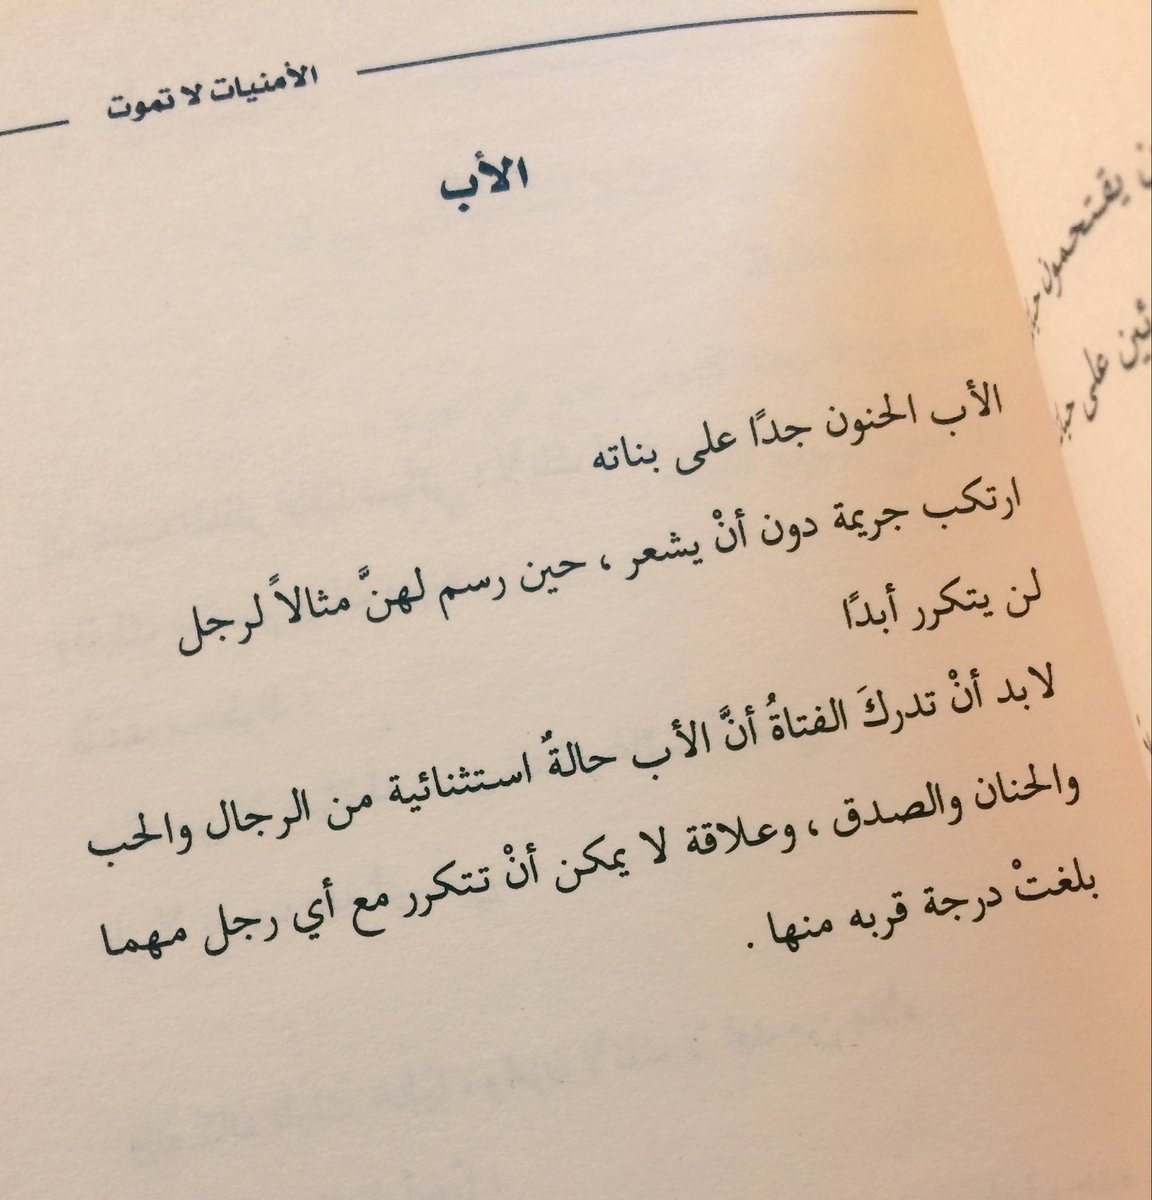 الأمنيات لا تموت
الأب
الأب الحنون جدًا على بناته
ارتكب جريمة دون أنْ يشعر ، حين رسم لهنَّ مثالاً لرجل
لن يتكرر أبدًا
لابد أنْ تدركَ الفتاةُ أنَّ الأب حالةٌ استثنائية من الرجال والحب
والحنان والصدق ، وعلاقة لا يمكن أنْ تتكرر مع أي رجل مهما
بلغتْ درجة قربه منها .
يقتحمون
على